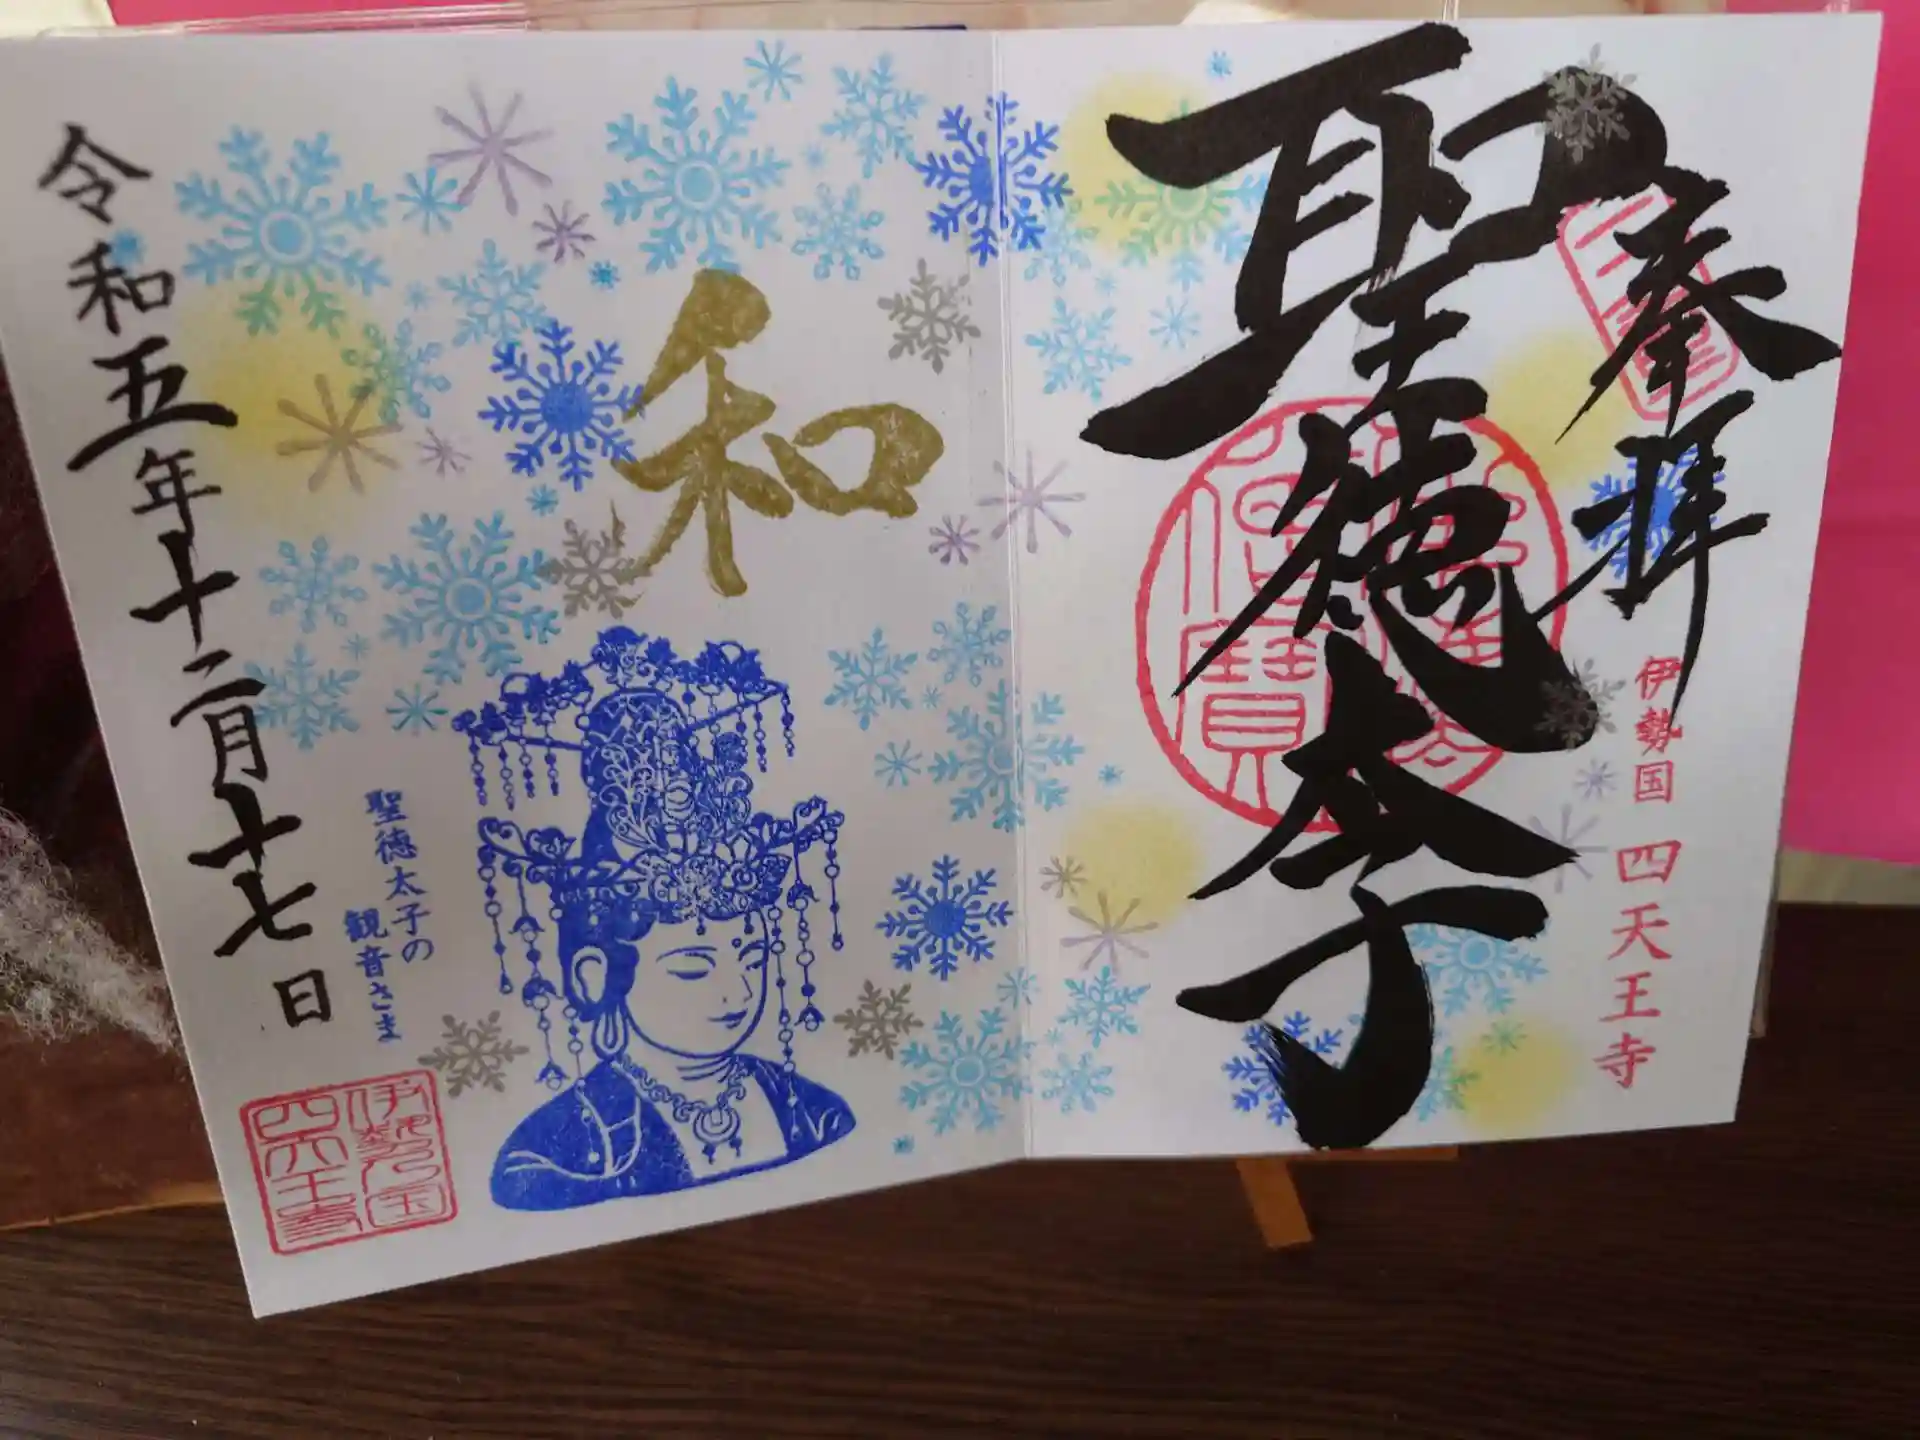 奉拝
聖徳太子
伊勢国 四天王寺
和
聖徳太子の
観音さま
令和五年十二月十七日
伊勢国
四天王寺